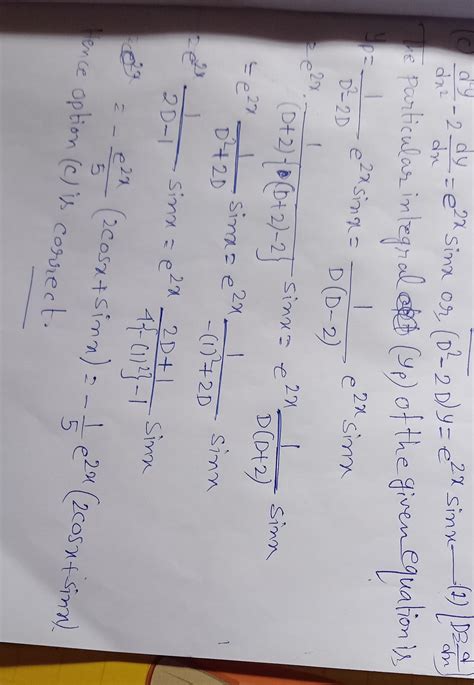 (c) d²y/dx² - 2 dy/dx = e^{2x} sinx or, (D² - 2D)y = e^{2x} sinx —— (1) [D ≡ d/dx]
The particular integral (yp) of the given equation is
yp = 1/(D² - 2D) e^{2x} sinx = 1/(D(D-2)) e^{2x} sinx
= e^{2x} · 1/((D+2){(D+2)-2}) sinx = e^{2x} 1/(D(D+2)) sinx
= e^{2x} 1/(D² + 2D) sinx = e^{2x} 1/(-(1)² + 2D) sinx
= e^{2x} 1/(2D-1) sinx = e^{2x} (2D+1)/(4{-(1)²}-1) sinx
= - e^{2x}/5 (2cosx + sinx) = - 1/5 e^{2x} (2cosx + sinx).
Hence option (c) is correct.